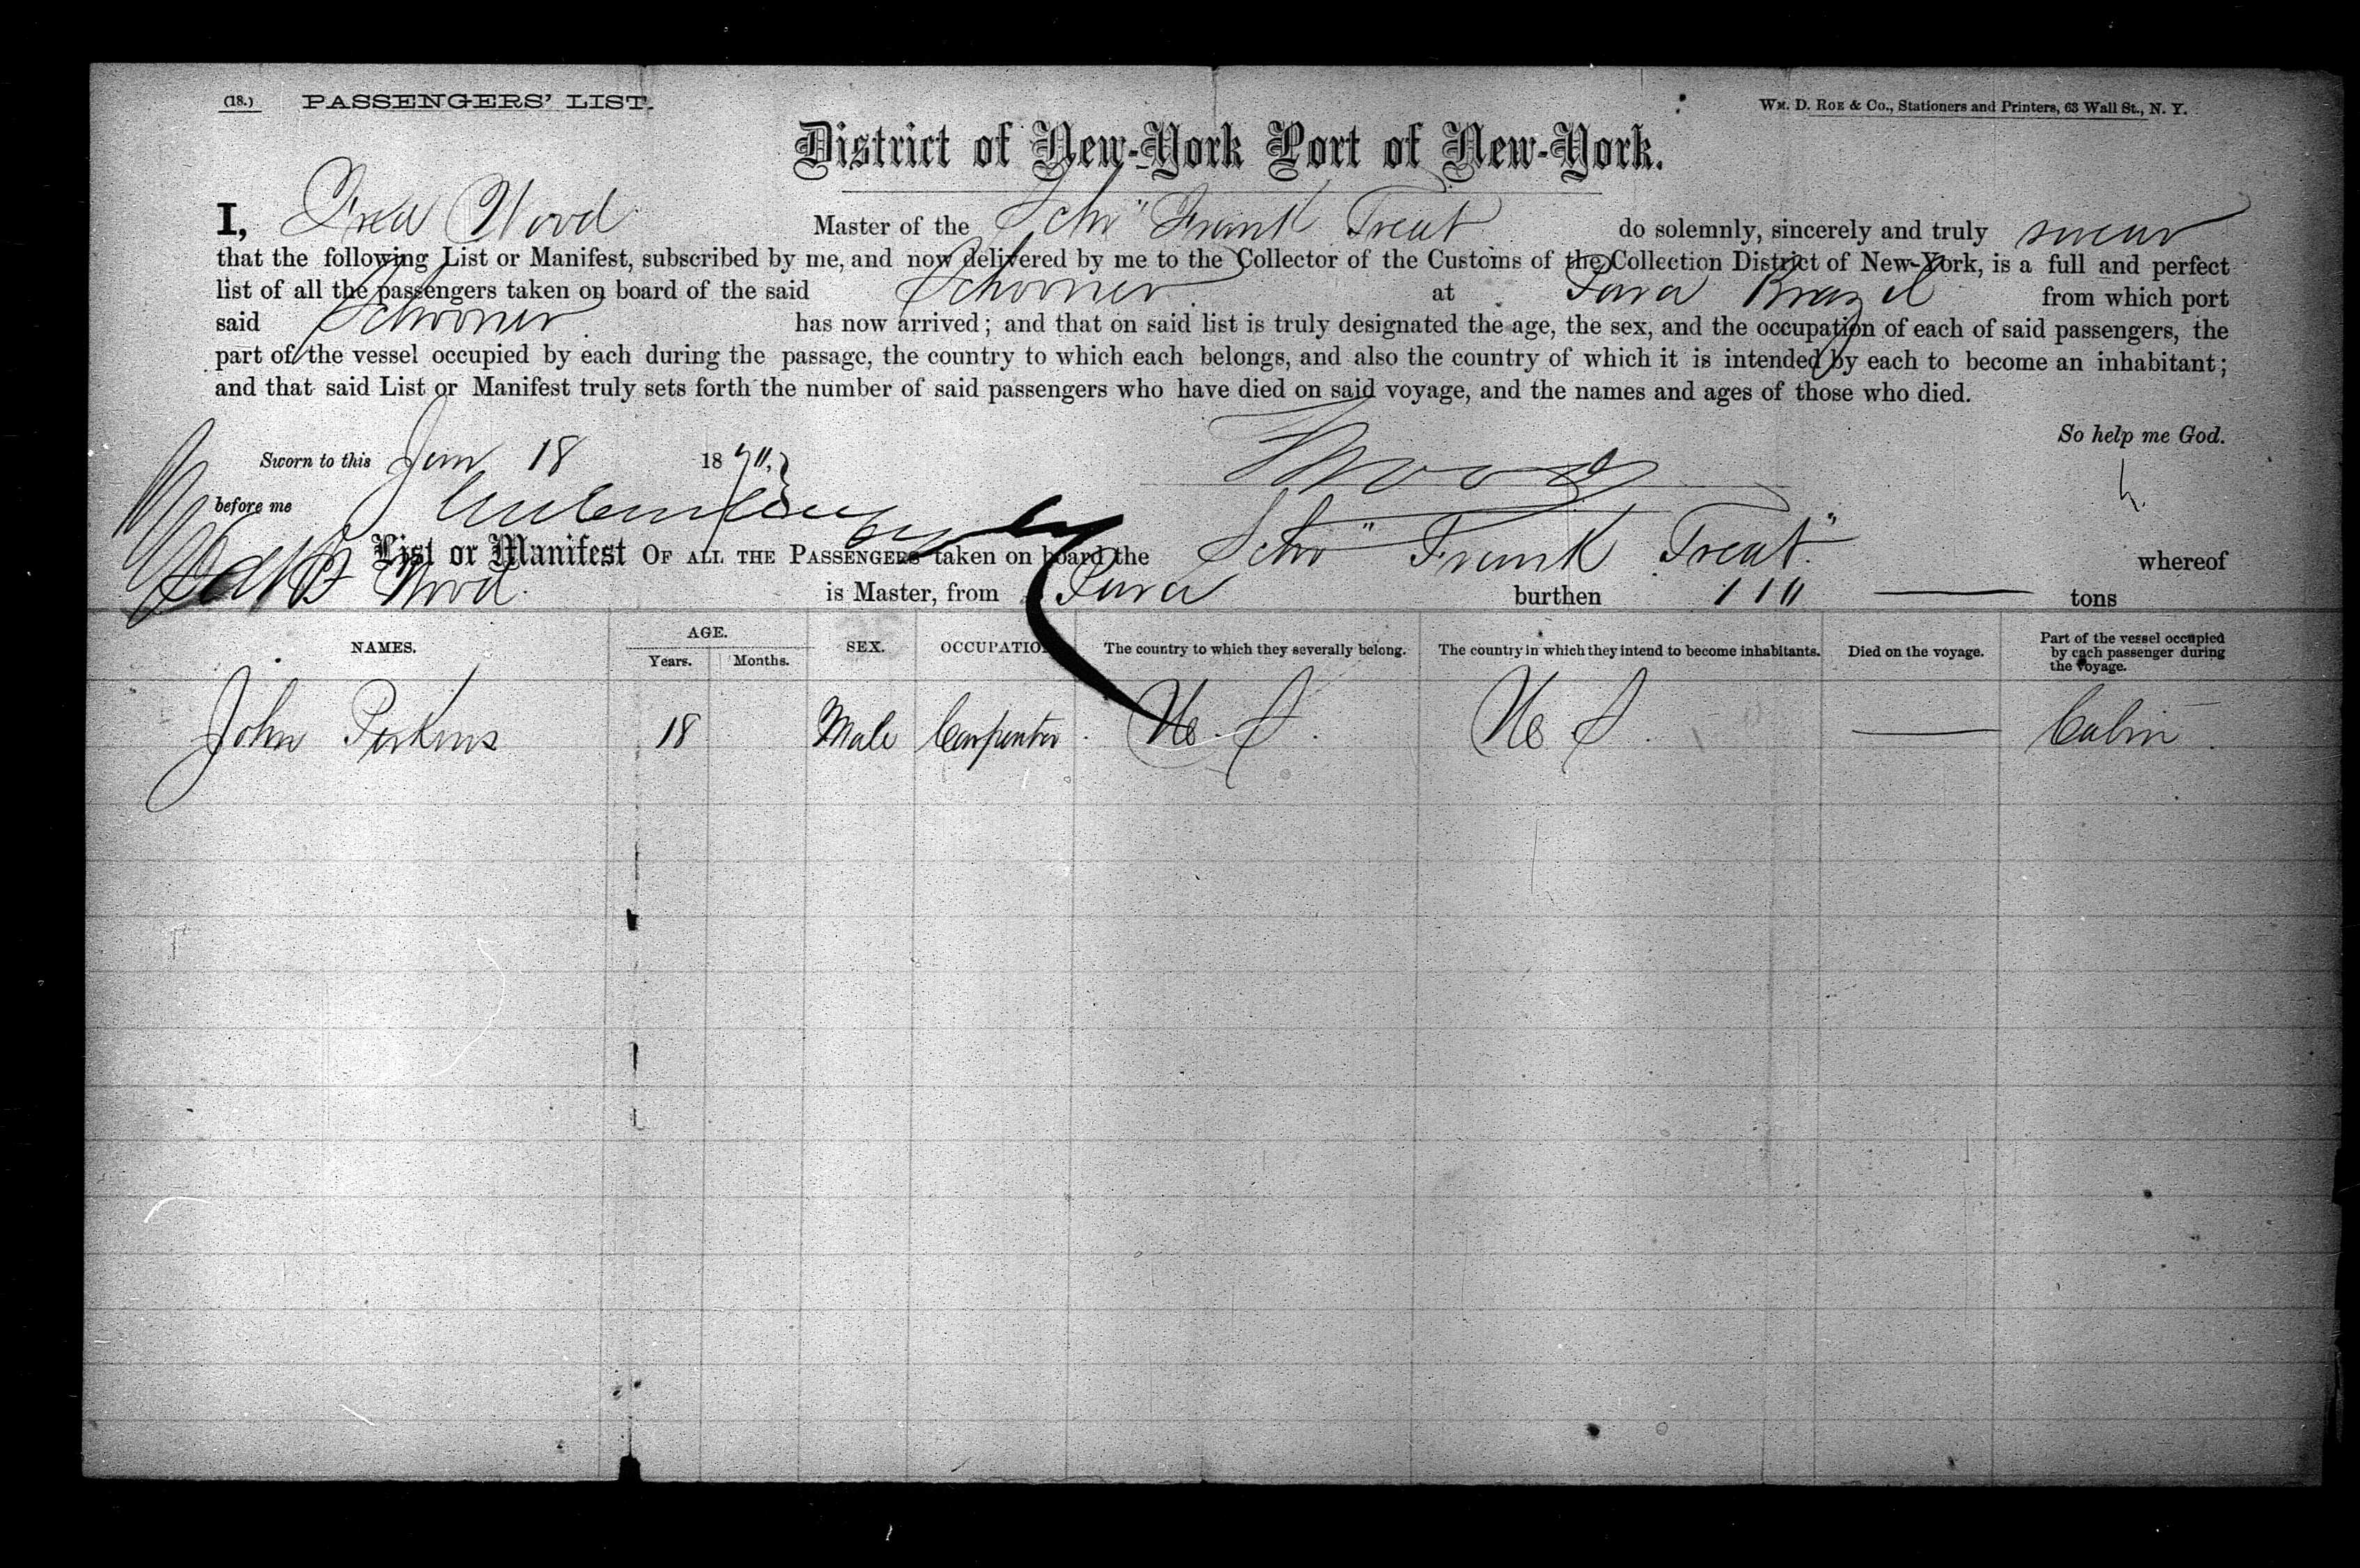 (18.) PASSENGERS' LIST. WM. D. ROE & Co., Stationers and Printers, 63 Wall St., N. Y.
District of New-York Port of New-York.
I, Fred Wood Master of the Schr "Frank Treat do solemnly, sincerely and truly swear
that the following List or Manifest, subscribed by me, and now delivered by me to the Collector of the Customs of the Collection District of New-York, is a full and perfect
list of all the passengers taken on board of the said Schooner at Para Brazil from which port
said Schooner has now arrived; and that on said list is truly designated the age, the sex, and the occupation of each of said passengers, the
part of the vessel occupied by each during the passage, the country to which each belongs, and also the country of which it is intended by each to become an inhabitant;
and that said List or Manifest truly sets forth the number of said passengers who have died on said voyage, and the names and ages of those who died.
So help me God.
Sworn to this 18 18 Wood
before me
List or Manifest OF ALL THE PASSENGERS taken on board the Schr "Frank Treat" whereof
Wood is Master, from Para burthen tons
NAMES. AGE. Years. Months. SEX. OCCUPATION The country to which they severally belong. The country in which they intend to become inhabitants. Died on the voyage. Part of the vessel occupied by each passenger during the voyage.
John Perkins 18 Male Carpenter U. S. U S. — Cabin